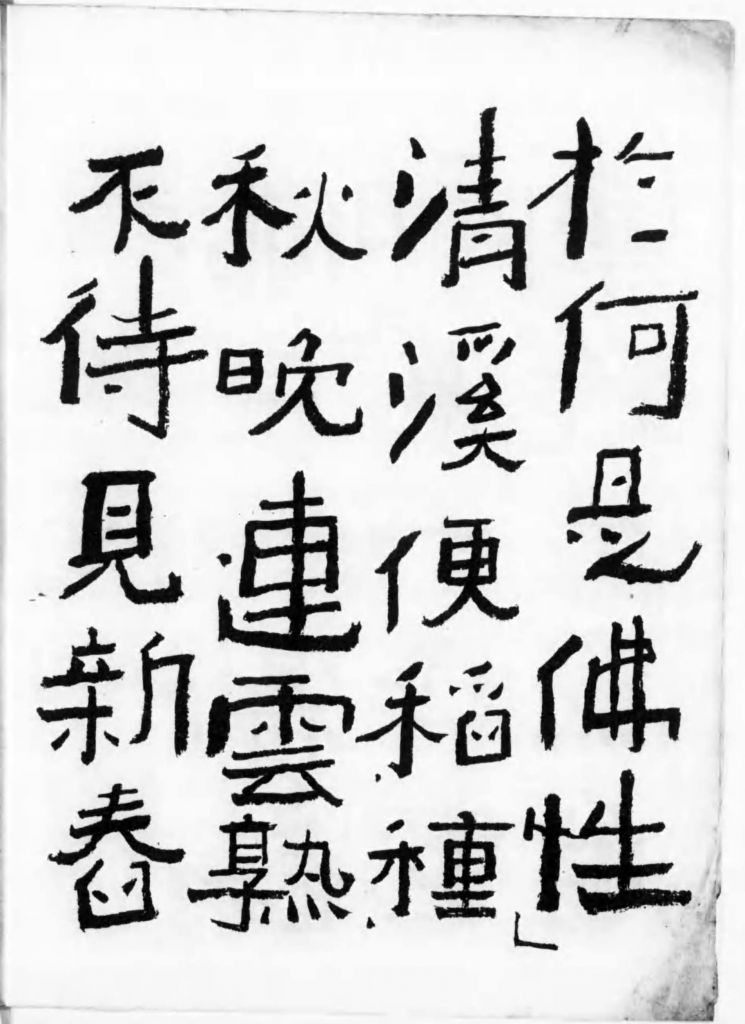 於何是佛性」
清溪便稻種
秋晩連雲熟
不待見新舂